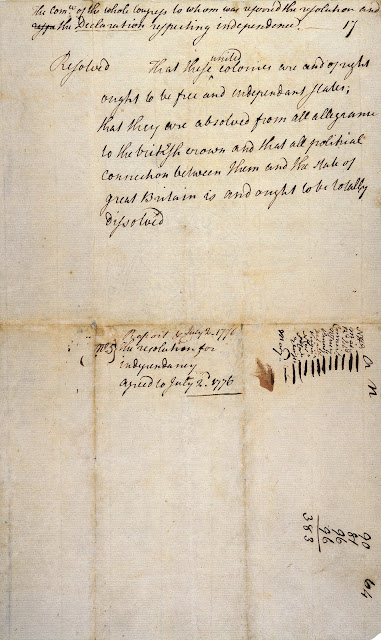 The com.ee of the whole Congress to whom was referred the resolution and
the Declaration respecting independence. 17
Resolved That these united colonies are and of right
ought to be free and independant states;
that they are absolved from all allegiance
to the british crown and that all political
connection between them and the state of
great Britain is and ought to be totally
dissolved
Report July 2. 1776
No. 5 the resolution for
independancy
agreed to July 2d. 1776
a n
90
81
96
96
383
64